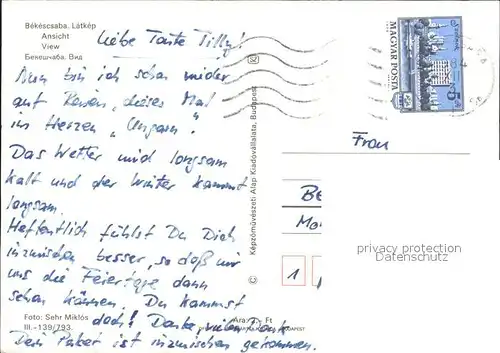 Békéscsaba. Látkép
Ansicht
View
Бекешчаба. Вид
Liebe Tante Tilly!
Nun bin ich schon wieder
auf Reisen, dieses Mal
im Herzen „Ungarn".
Das Wetter wird langsam
kalt und der Winter kommt
langsam.
Hoffentlich fühlst Du Dich
inzwischen besser, so daß wir
uns die Feiertage dann
sehen können. Du kommst
doch! Danke, vielen Dank
Dein Paket ist inzwischen gekommen.
Foto: Sehr Miklós
III.-139/793.
Ara: 3,- Ft
BUDAPEST
© Képzőművészeti Alap Kiadóvállalata, Budapest
MAGYAR POSTA
5
Frau
Be
Mo
1
privacy protection
Datenschutz